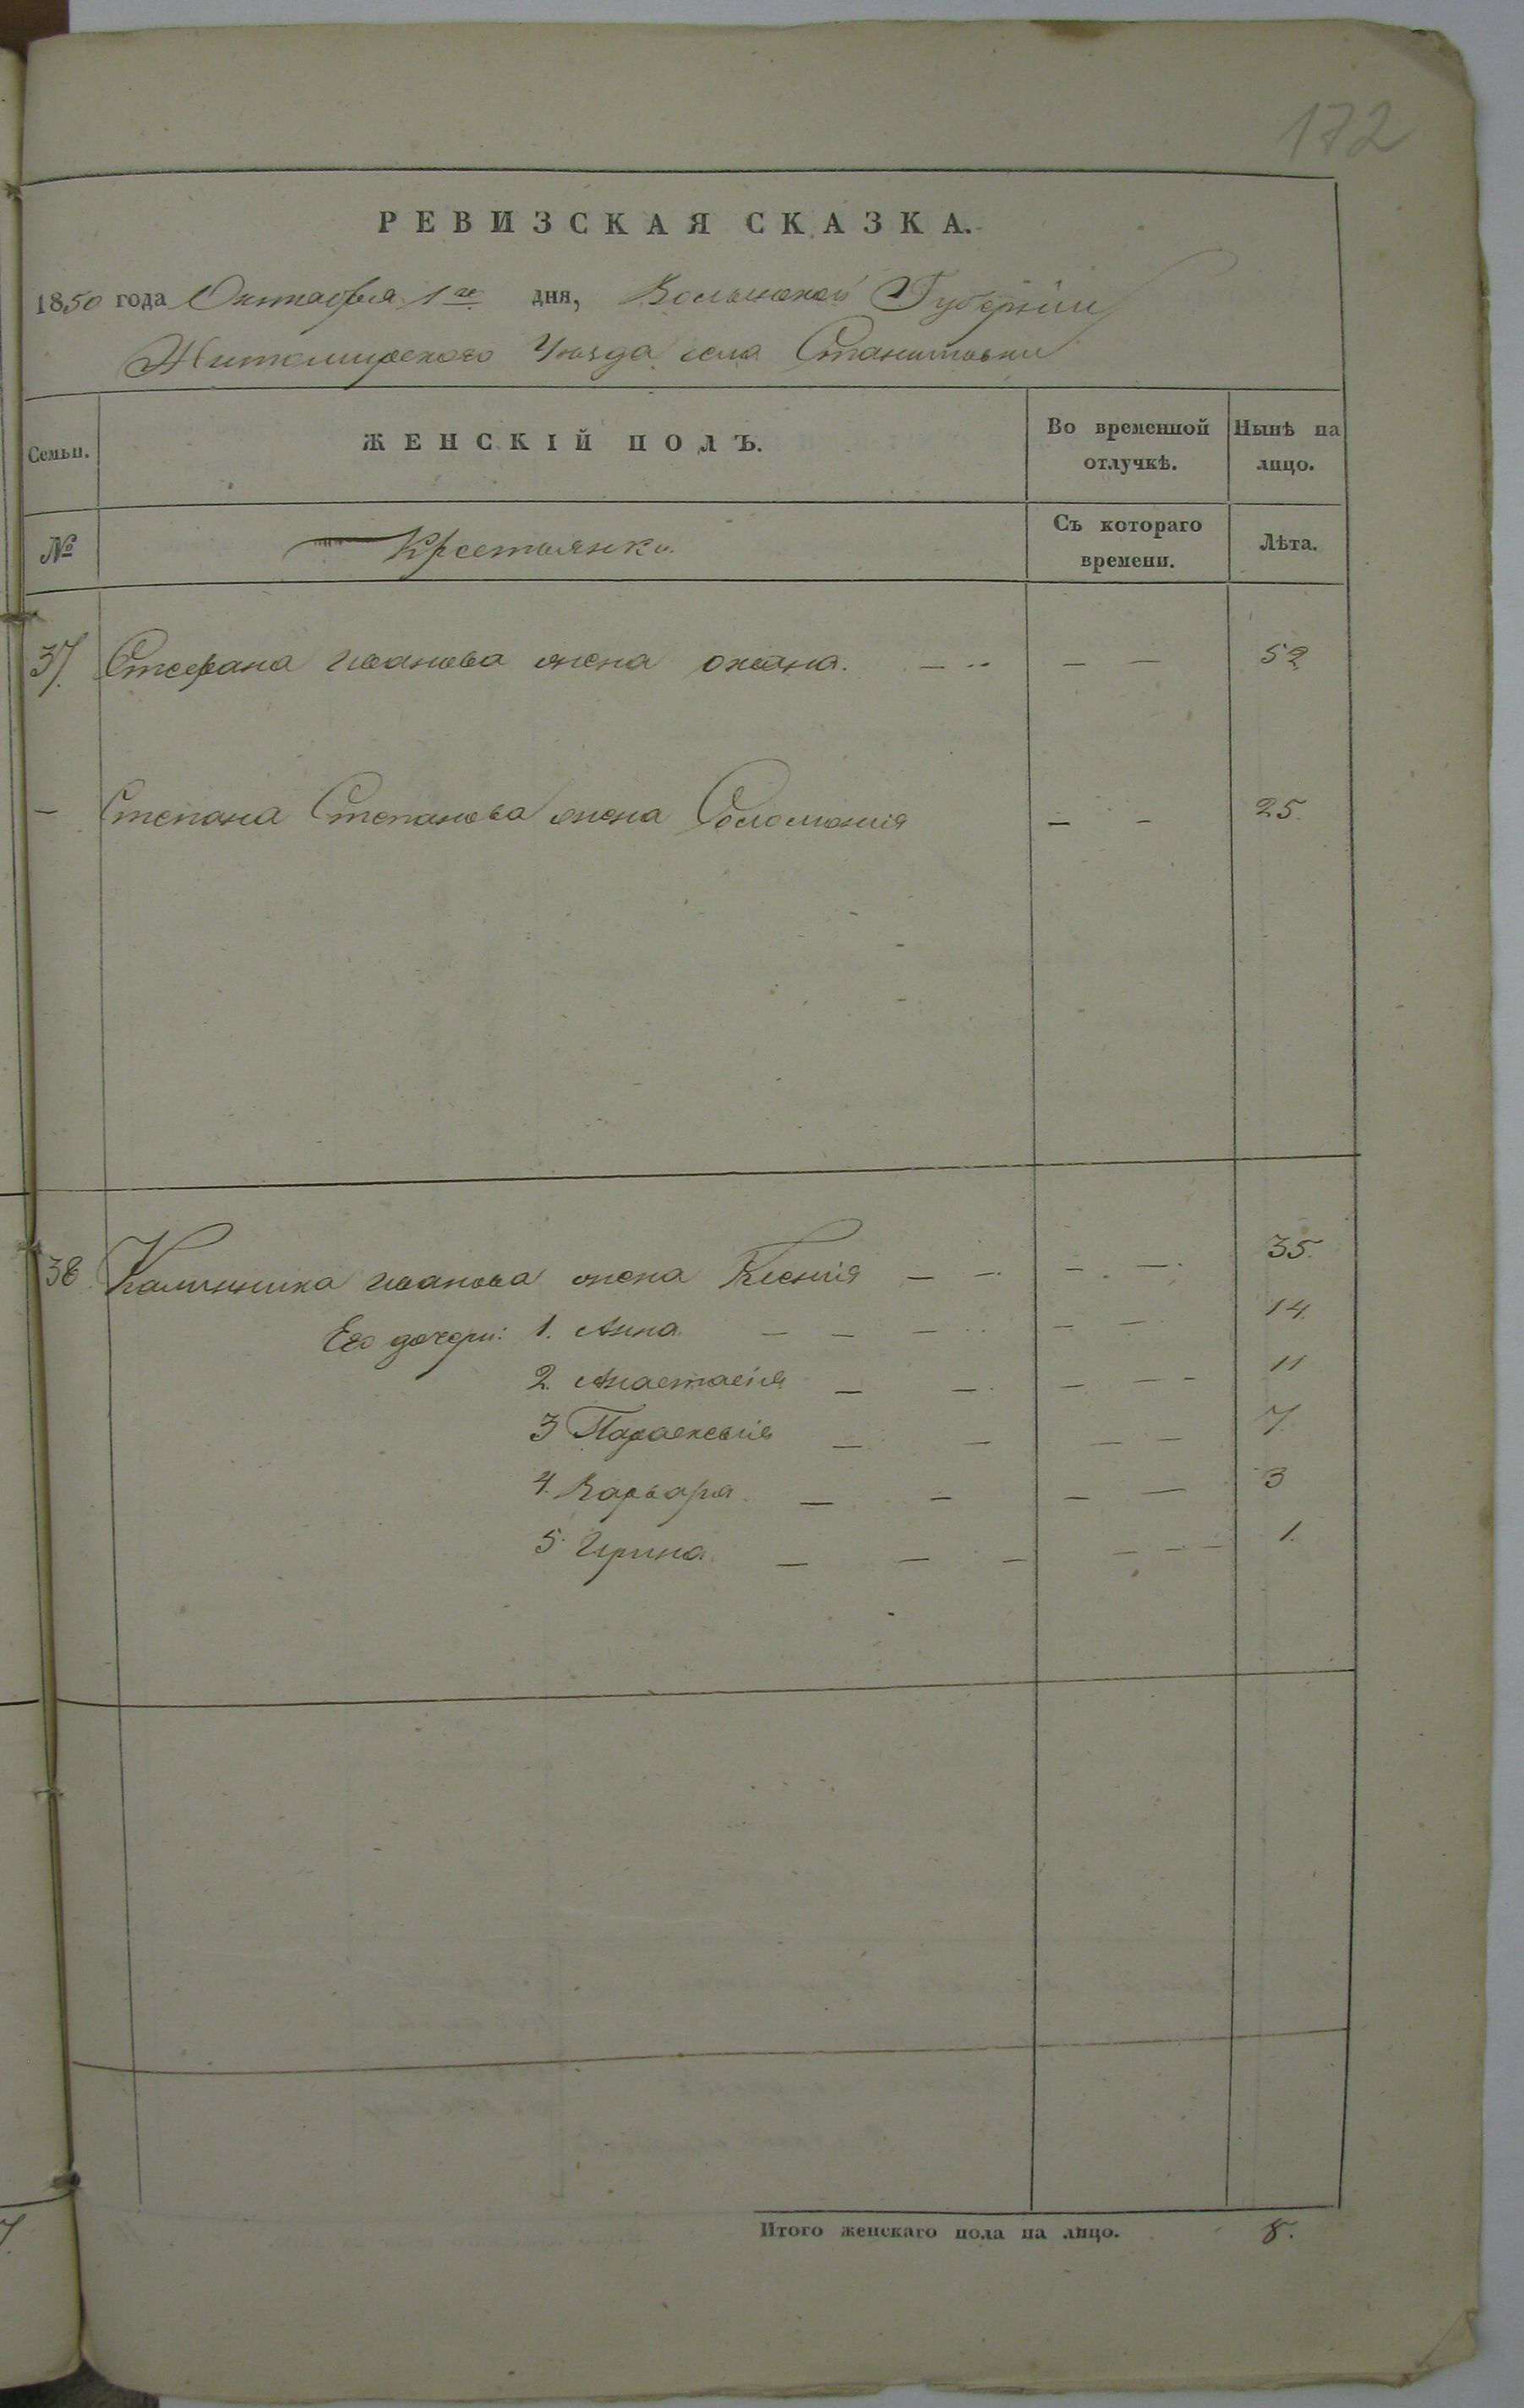 172
РЕВИЗСКАЯ СКАЗКА.
1850 года Октября 1го дня, Волынской Губернии
Житомирского Уезда села Станишовки
Семьи.
ЖЕНСКІЙ ПОЛЪ.
Во временной отлучкѣ.
Нынѣ на лицо.
№
Крестьянки.
Съ котораго времени.
Лѣта.
37. Стефана Иванова жена — — — 52
— Степана Степанова жена Соломонія — — 25.
38 Калинника Иванова жена Ксенія — — — — 35.
Его дочери: 1. Анна — — — — — 14.
2. Анастасія — — — — — 11
3 Параскевія — — — — 7.
4. Варвара — — — — 3
5. Ирина — — — — — — 1.
Итого женскаго пола на лицо. 8.
7